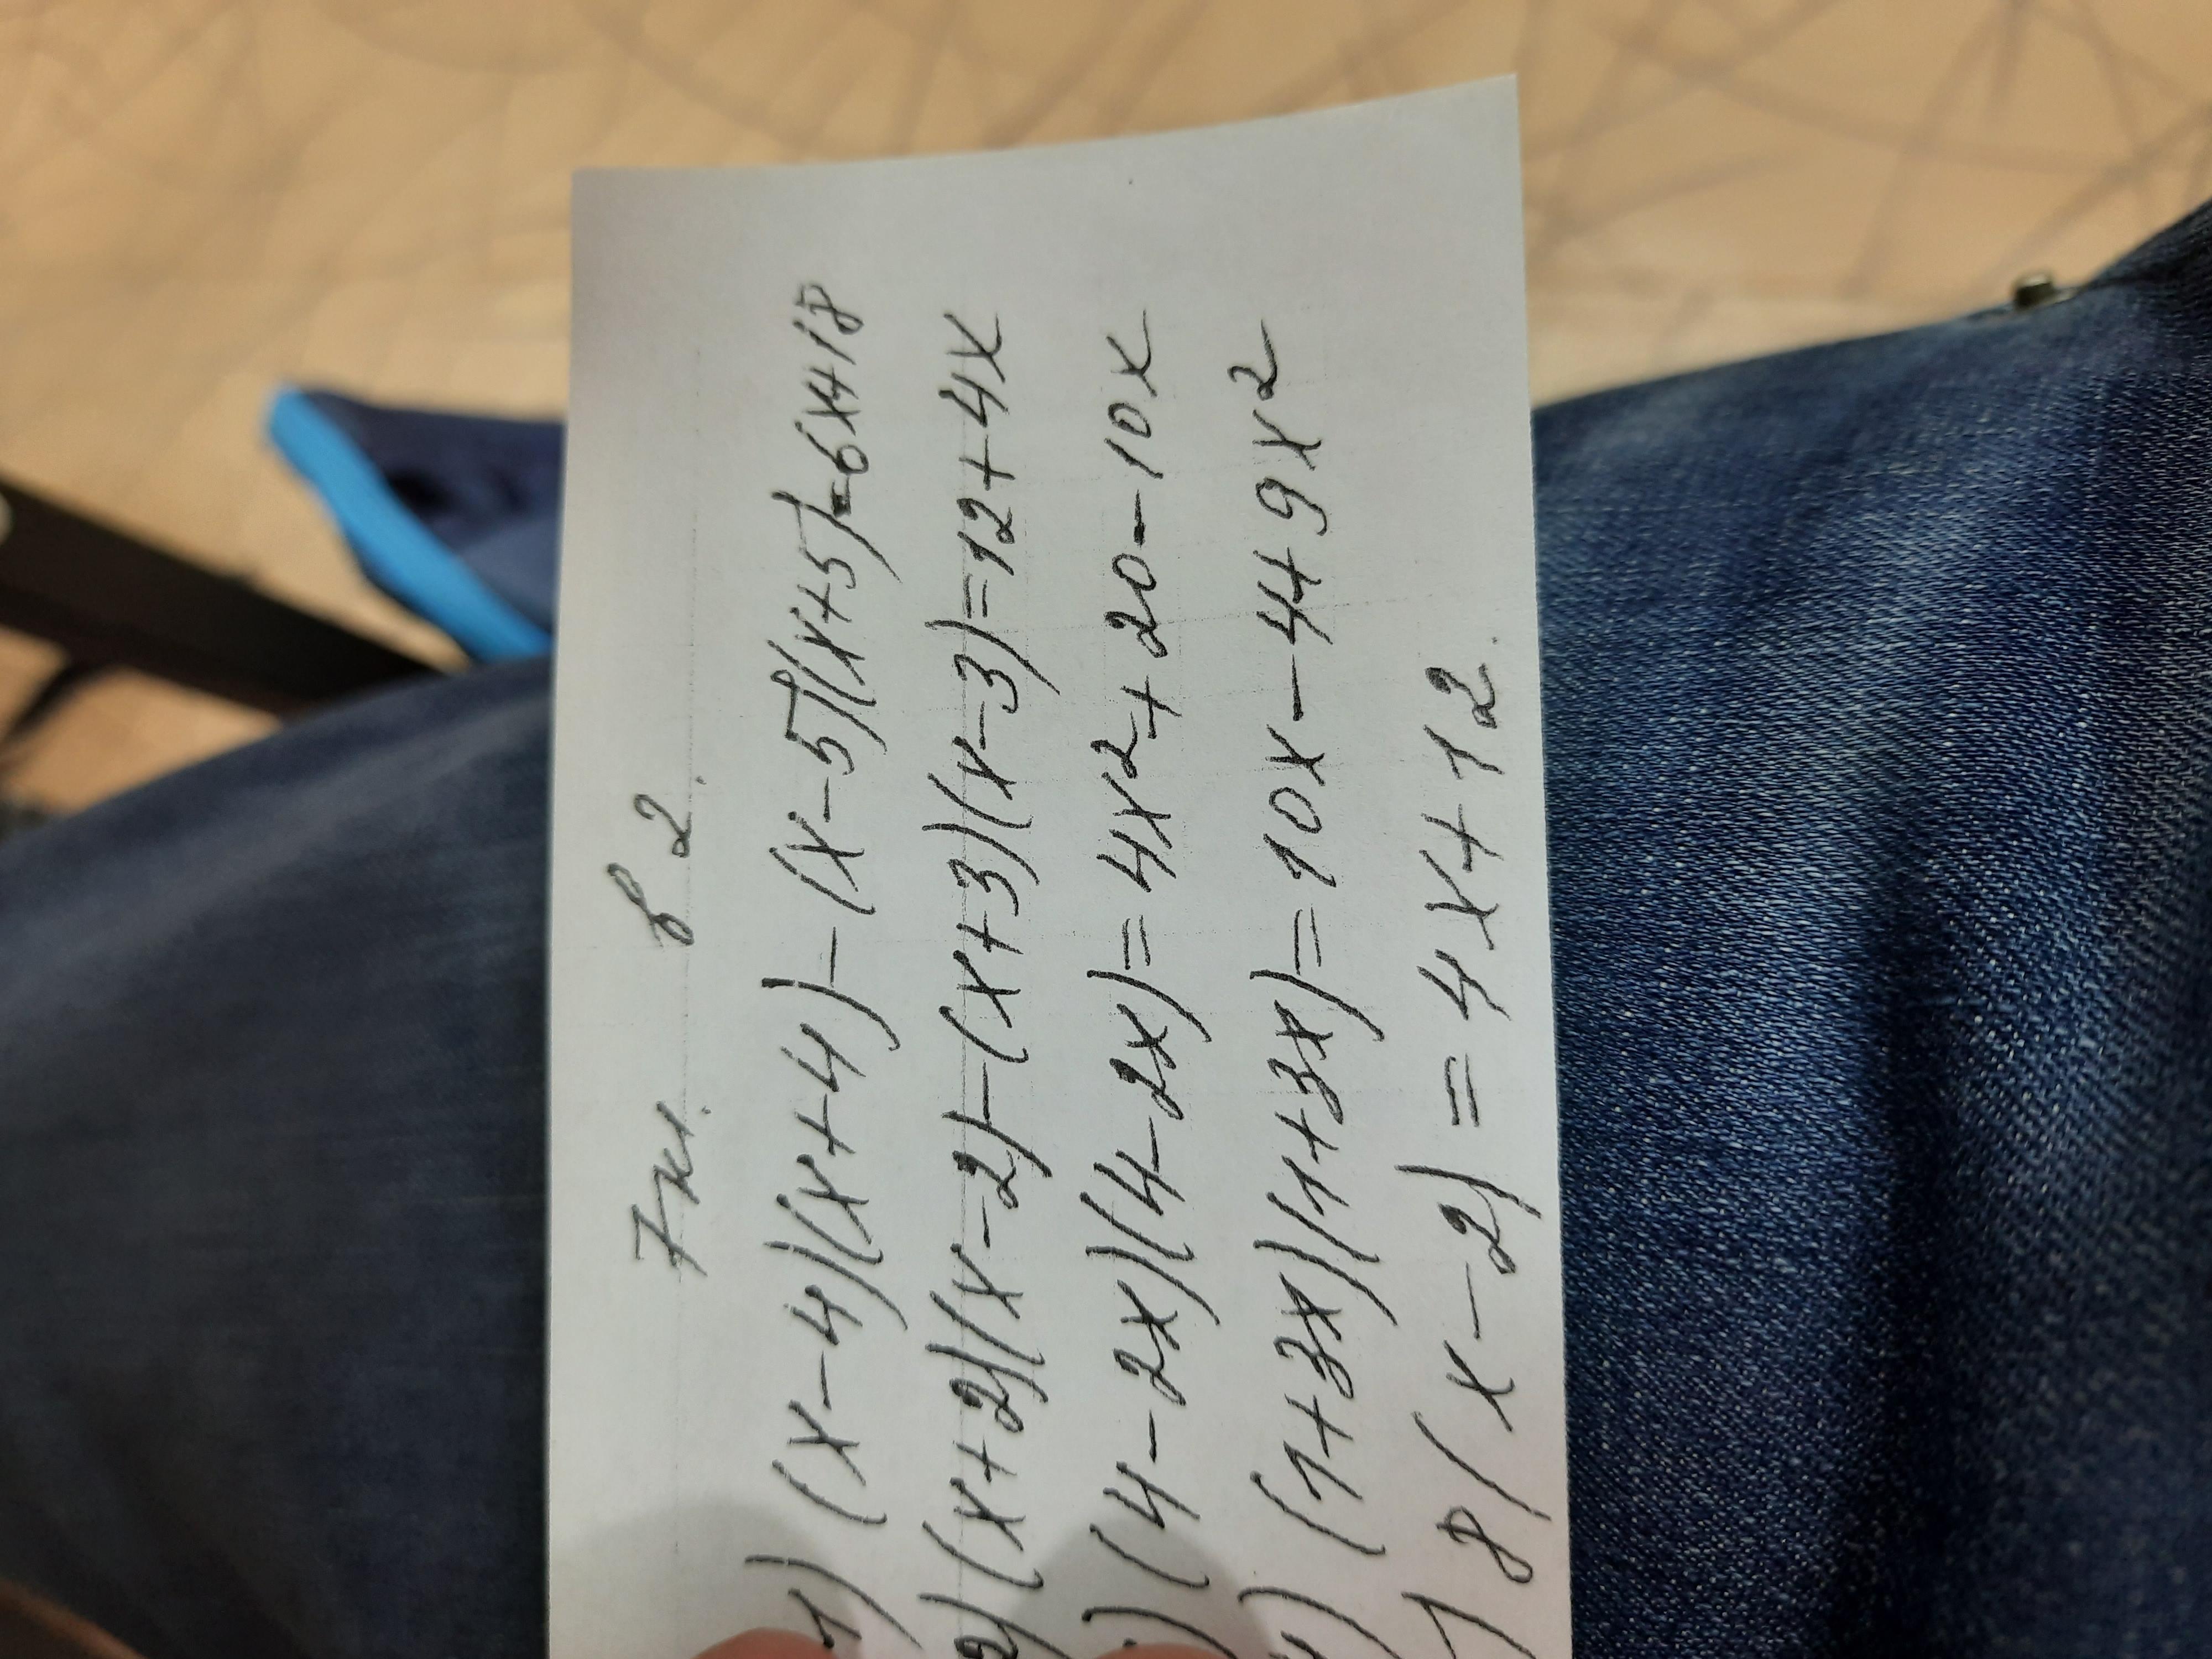 7 кл. в 2.
1) (x-4)(x+4)-(x-5)(x+5)=6x+18
2) (x+2)(x-2)-(x+3)(x-3)=12+4x
) (4-2x)(4-2x)=4x²+20-10x
4) (1+3x)(1+3x)=10x-4+9x²
) 8(x-2)=4x+12.